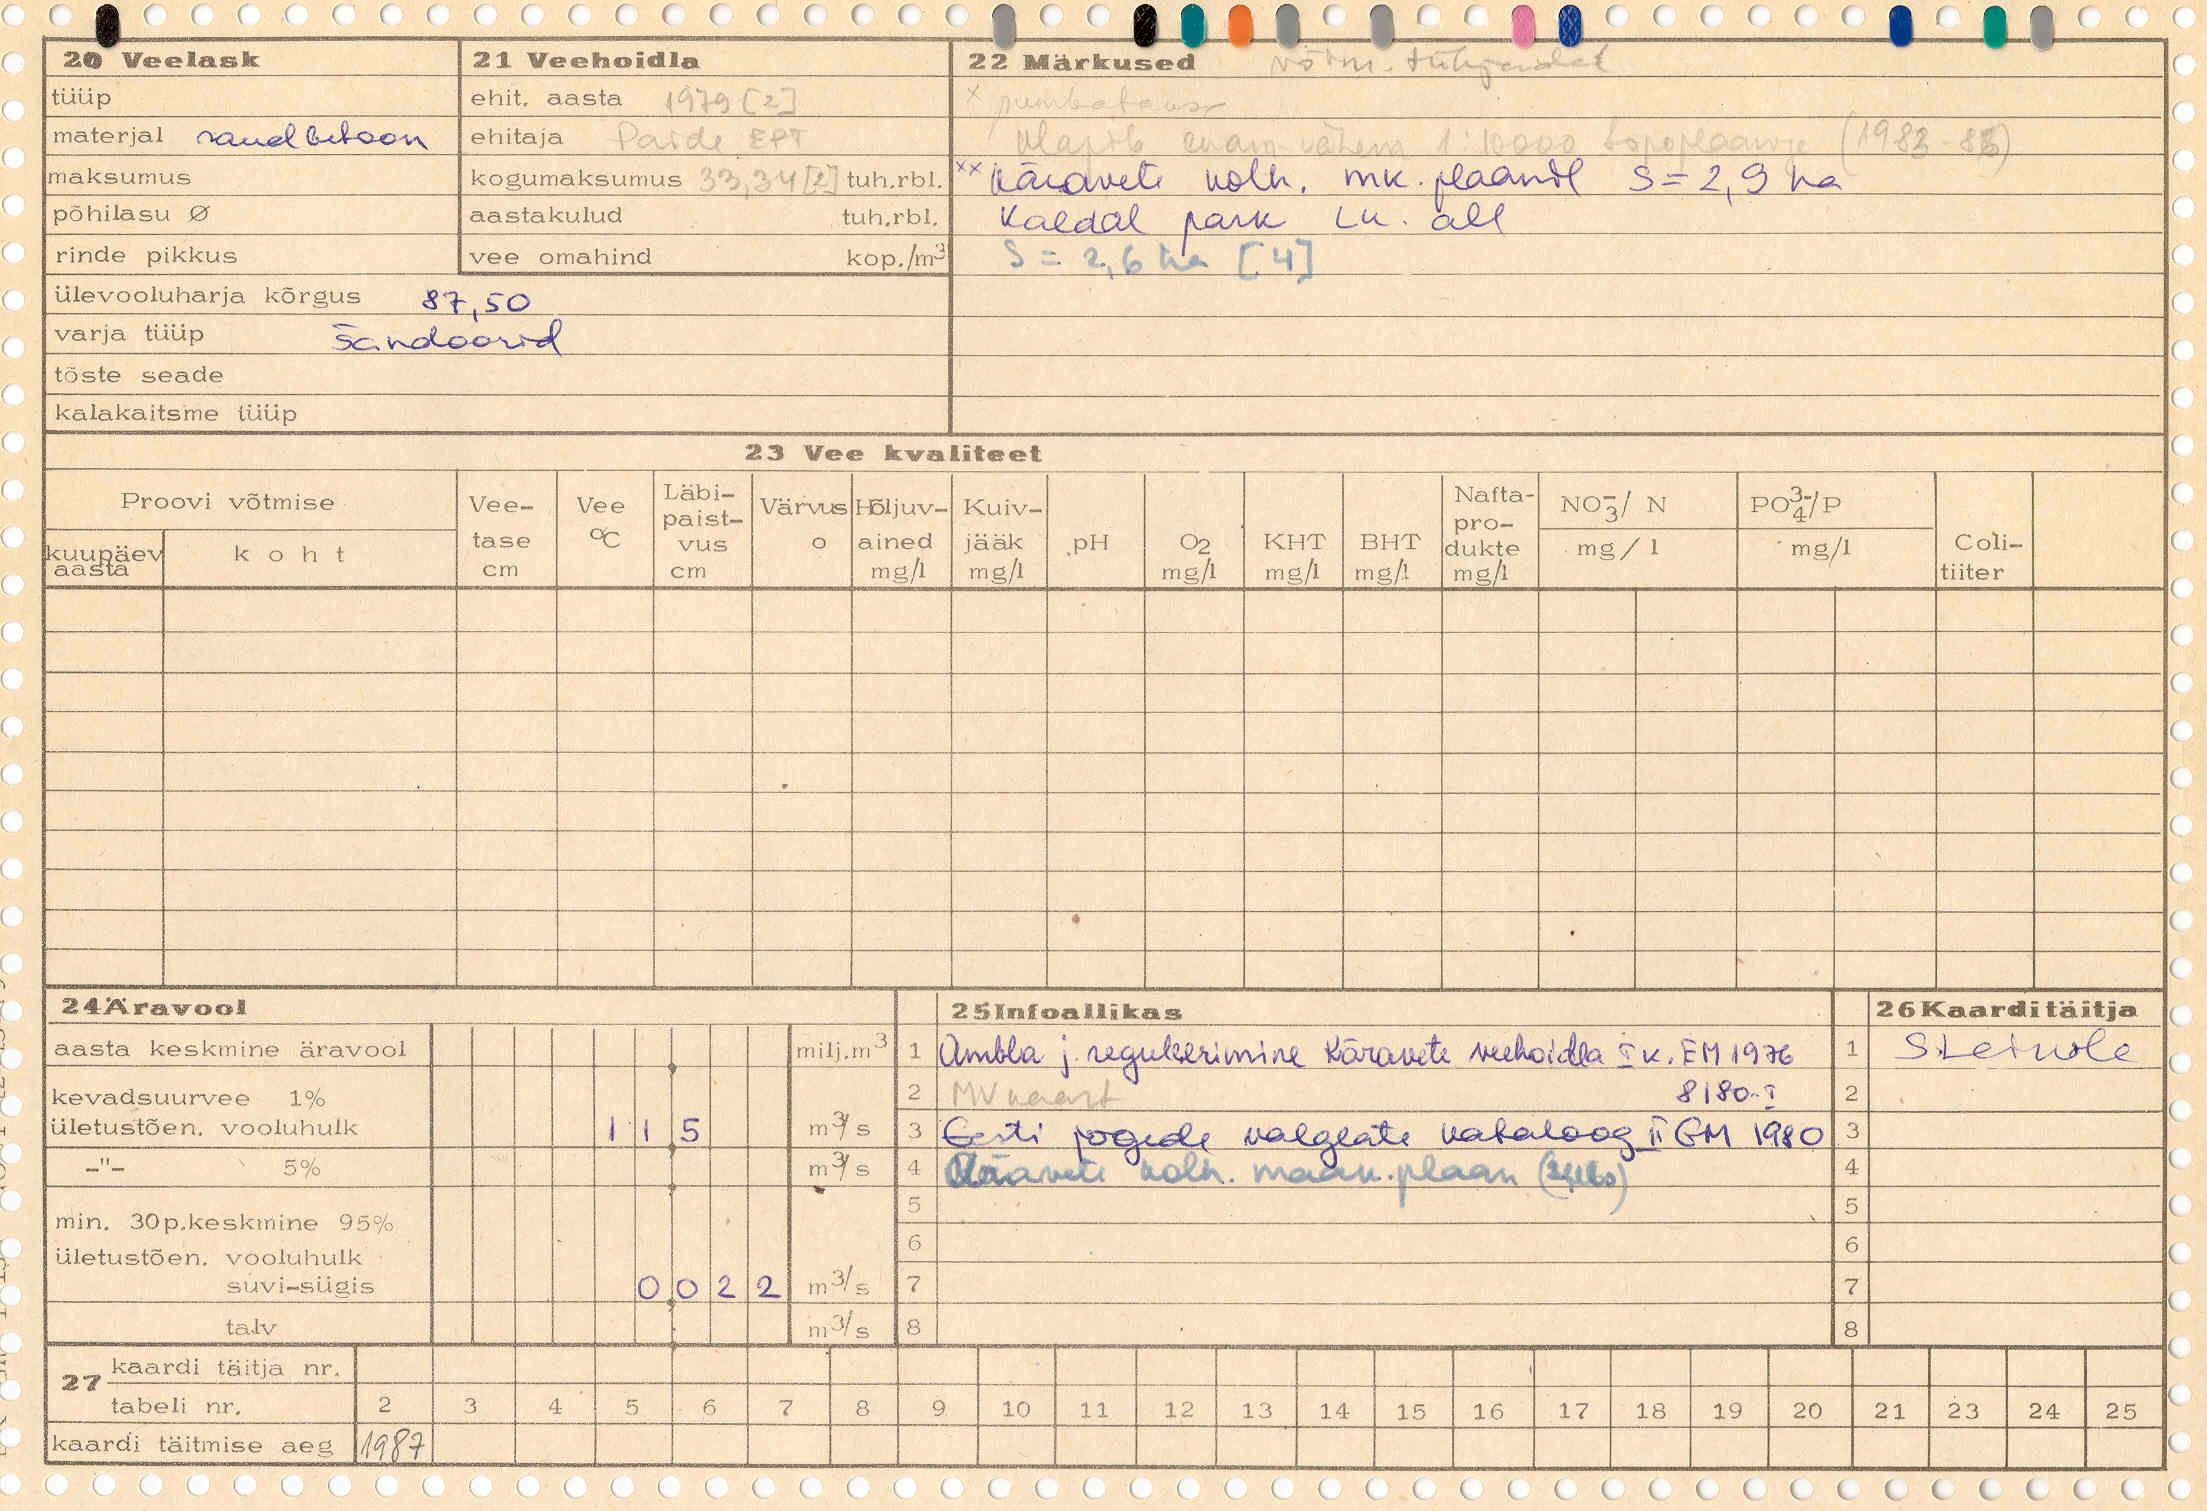 20 Veelask
tüüp
materjal raudbetoon
maksumus
põhilasu Ø
rinde pikkus
ülevooluharja kõrgus 87,50
varja tüüp šandoorid
tõste seade
kalakaitsme tüüp
21 Veehoidla
ehit. aasta 1979 [2]
ehitaja Paide EPT
kogumaksumus 33,34 [2] tuh.rbl.
aastakulud tuh.rbl.
vee omahind kop./m³
22 Märkused
x
klapib enam-vähem 1:10000 topoplaaniga
xx Käravete kolh. mk. plaanil S = 2,9 ha
Kaldal park LK. all
S = 2,6 ha [4]
23 Vee kvaliteet
Proovi võtmise
kuupäev aasta
koht
Vee-
tase
cm
Vee
°C
Läbi-
paist-
vus
cm
Värvus
o
Hõljuv-
ained
mg/l
Kuiv-
jääk
mg/l
pH
O2
mg/l
KHT
mg/l
BHT
mg/l
Nafta-
pro-
dukte
mg/l
NO₃⁻/ N
mg/l
PO₄³⁻/P
mg/l
Coli-
tiiter
24 Äravool
aasta keskmine äravool milj.m³
kevadsuurvee 1%
ületustõen. vooluhulk 1 1 5 m³/s
-"- 5% m³/s
min. 30p.keskmine 95%
ületustõen. vooluhulk
suvi-sügis 0 0 2 2 m³/s
talv m³/s
25 Infoallikas
1 Ambla j. reguleerimine Käravete veehoidla I k. EM 1976
2 MV kaart 8180-I
3 Eesti jõgede valgalate kataloog II EM 1980
4 Käravete kolh. maak. plaan
5
6
7
8
26 Kaardi täitja
1
2
3
4
5
6
7
8
27 kaardi täitja nr.
tabeli nr. 2 3 4 5 6 7 8 9 10 11 12 13 14 15 16 17 18 19 20 21 23 24 25
kaardi täitmise aeg 1987